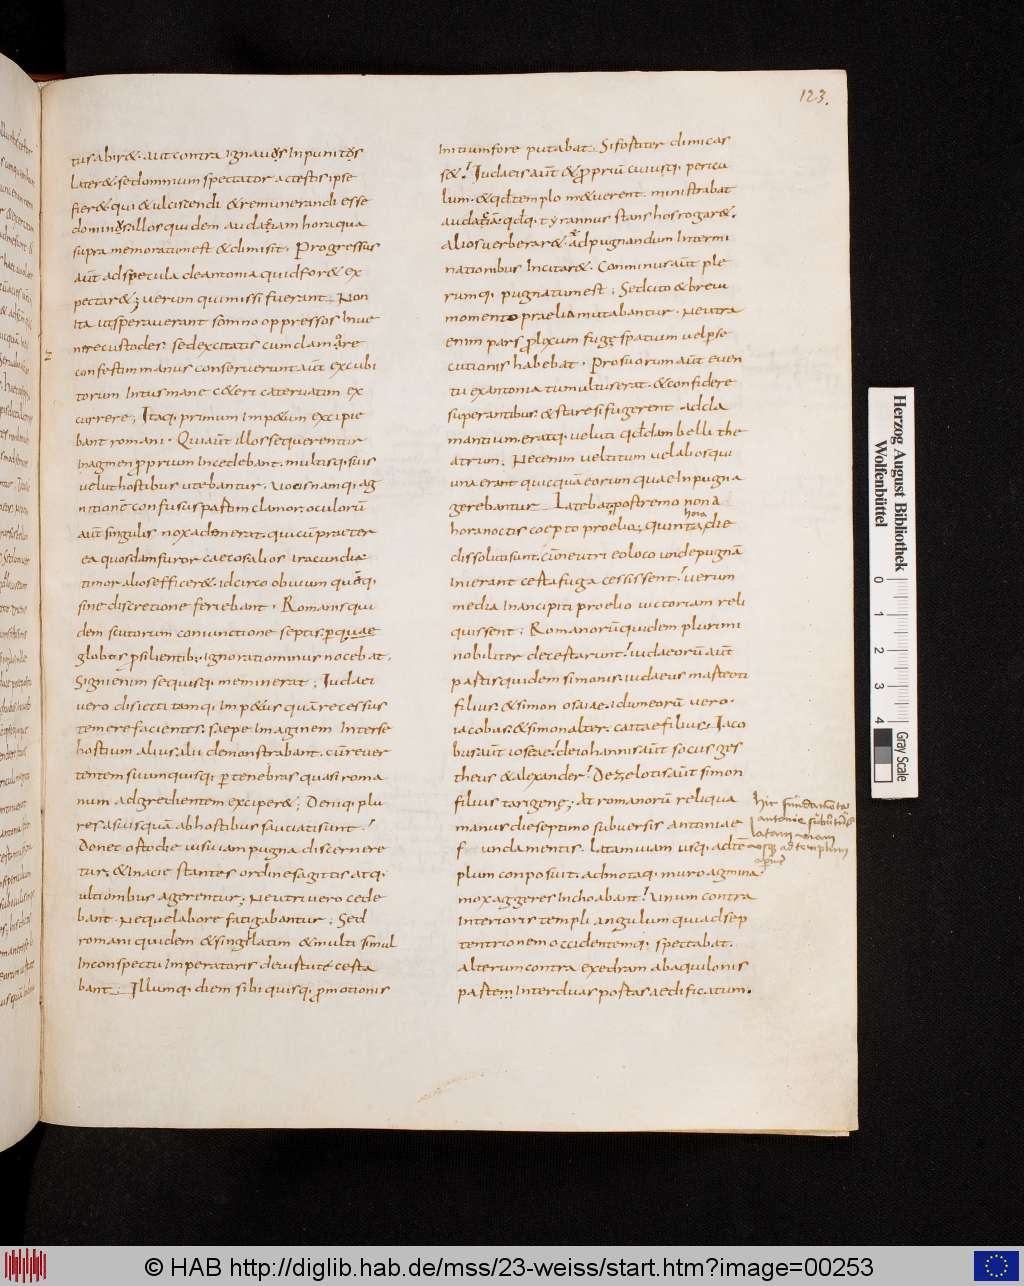 123.
tus abir&. aut contra ignauos Inpunitos
Later&. sed omnium spectator ac testis ipse
fier& qui & ulciscendi & remunerandi esse
dominus. illos quidem audatiam hora qua
supra memoratum est & dimisit. Progressus
aut̄ ad specula de antonia quid for& ex
pectar&; uerum qui missi fuerant Non
ita ut sperauerant somno oppressos Inue
nere custodes. sed excitatis cum clamore
confestim manus conseruerunt aut̄ excubi
torum Intus mane c&eri cateruatim ex
currere; Itaq. primum Imp&um excipie
bant romani. Quiaut̄ illos sequerentur
Inagmen proprium Incedebant. multisq. suis
uelut hostibus utebantur. uocis namq. ag
nitionē confusus passim clamor. oculorū
aut̄ singulis nox ademerat. quicū praeter
ea quosdam furor caecos alios iracundia
timor alios efficer& idcirco obuium quēq.
sine discretione feriebant. Romanis qui
dem scutorum coniunctione septis. p quae
globos psilientib; ignoratio minus nocebat.
Signi enim se quisq. meminerat; Iudaei
uero disiecti tamq. Imp&us quā recessus
temere facientes. saepe Imaginem Interse
hostium alius alii demonstrabant. cū reuer
tentem suum quisq. p tenebris quasi roma
num adgredientem exciper&; Deniq. plu
res a suis quā ab hostibus sauciati sunt.
Donec ostio die uisu iam pugna discernere
tur. & In acie stantes ordine sagittis atq.
ultionibus agerentur; Neutri uero cede
bant. Neque labore fatigabantur; Sed
romani quidem & singillatim & multi simul
Inconspectu Imperatoris deuirtute certa
bant Illumq. diem sibi quisq. promotionis
Initium fore putabat. Si fortiter dimicas
s&. Iudaeis aut̄ & propriū cuiusq. pericu
lum. & qd templo m&uerent. ministrabat
audatiā. qdq. tyrannus stans hos rogar&.
alios uerberar&. ad pugnandum Intermi
nationibus Incitar&. Conminus aut̄ ple
rumq. pugnatum est; Sed cito & breui
momento praelia mutabantur. Neutra
enim pars prolixum fuge spatium uel pse
cutionis habebat. Pro suorum aut̄ euen
tu ex antonia tumultus erat. & confidere
superantibus. & stare si fugirent adcla
mantium. eratq. ueluti qddam belli the
atrum; Nec enim uel titum uel alios qui
una erant quicquā eorum quae In pugna
gerebantur Latebat postremo nona
hora
hora noctis coepto proelio; quinta die
dissoluti sunt. cū neutri eo loco unde pugnā
Inierant certa fuga cessissent. uerum
media In ancipiti proelio uictoriam reli
quissent; Romanorū quidem plurimi
nobiliter decertarunt. iudaeorū aut̄
partis quidem simonis. iudaeus martheoti
filius. & simon osaiae. idumeorū uero.
iacobus. & simon alter. caitae filius; Iaco
bus aut̄ ioseae. de iohannis aut̄ socus ges
theus & alexander. De zelotis aut̄ simon
filius tarigene; At romanorū reliqua
manus die septimo subuersis antoniae
f undamentis. latam uiam usq. ad tē
plum conposuit. admotaq. muro agmina
mox aggeres Inchoabant. Unum contra
Interioris templi angulum qui ad sep
tentrionem occidentemq. spectabat.
alterum contra exedram ab aquilonis
partem Inter duas portas aedificatum.
hic fundam̄ta
antonie subuersa
latam uiam
usq; ad templum
aperuit
Herzog August Bibliothek
Wolfenbüttel
0 1 2 3 4
Gray Scale
© HAB http://diglib.hab.de/mss/23-weiss/start.htm?image=00253